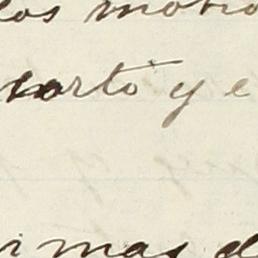 los motivo
corto y e
i mas d